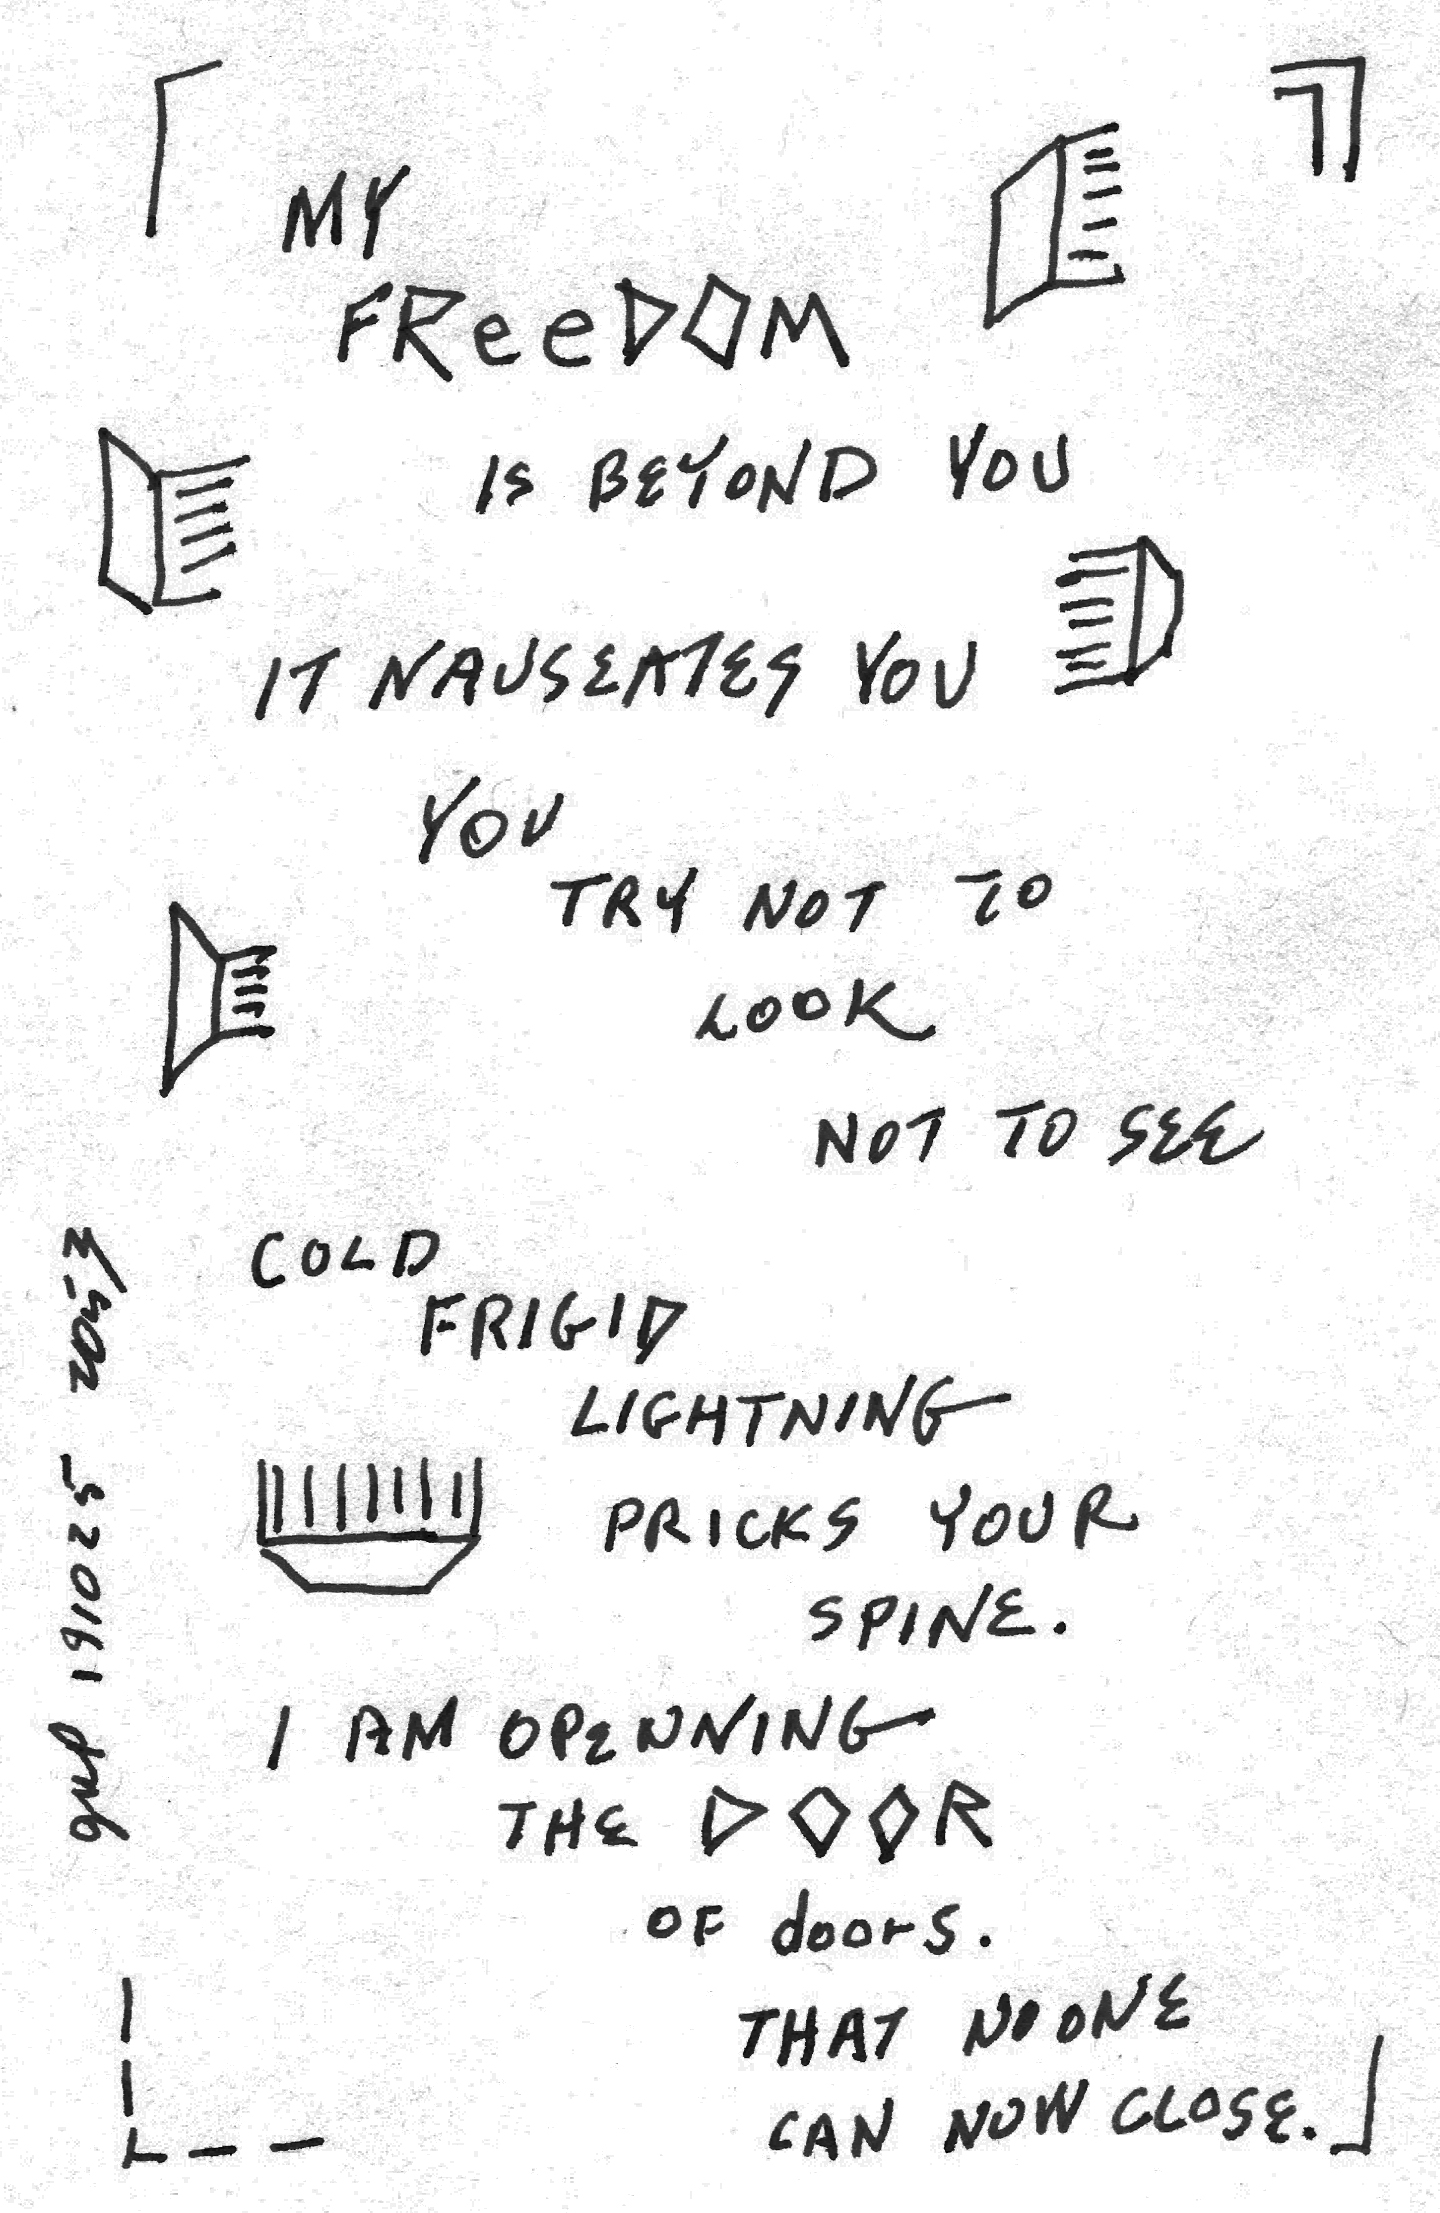 MY
FReeDOM
IS BEYOND YOU
IT NAUSEATES YOU
YOU
TRY NOT TO
LOOK
NOT TO SEE
COLD
FRIGID
LIGHTNING
PRICKS YOUR
SPINE.
I AM OPENNING
THE DOOR
OF doors.
THAT NO ONE
CAN NOW CLOSE.
191025